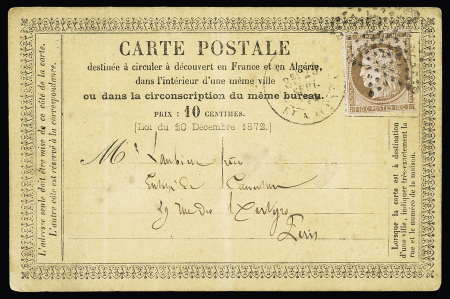 CARTE POSTALE
destinée à circuler à découvert en France et en Algérie,
dans l'intérieur d'une même ville
ou dans la circonscription du même bureau.
PRIX : 10 CENTIMES.
(Loi du 20 Décembre 1872.)
Mr
29 rue des Martyrs
Paris
L'adresse seule doit être mise de ce côté de la carte.
L'autre côté est réservé à la correspondance.
Lorsque la carte est à destination
d'une ville, indiquer très-exactement la
rue et le numéro de la maison.
POSTES